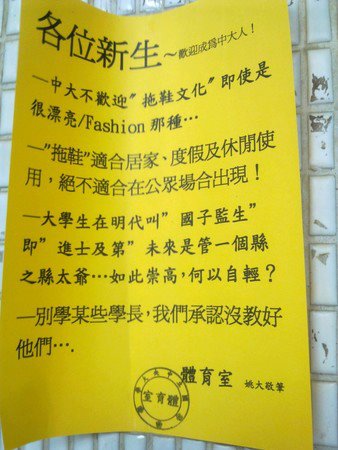 各位新生～歡迎成為中大人！
—中大不歡迎”拖鞋文化”即使是
很漂亮/Fashion 那種…
—”拖鞋”適合居家、度假及休閒使
用，絕不適合在公眾場合出現！
—大學生在明代叫”國子監生”
即”進士及第”未來是管一個縣
之縣太爺…如此崇高，何以自輕？
—別學某些學長，我們承認沒教好
他們….
體育室 姚大敬筆
體育室